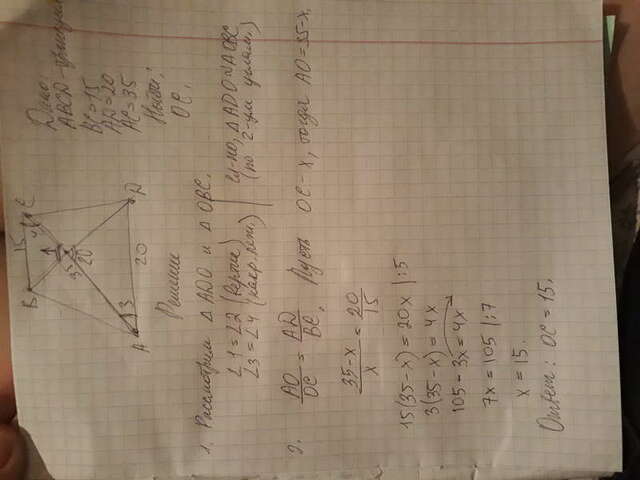 Дано:
ABCD - трапеция
BC = 15
AD = 20
AC = 35
Найти:
OC.
B 15 C
4
1
O
35 2
3
A 20 D
Решение
1. Рассмотрим Δ ADO и Δ OBC.
∠1 = ∠2 (вертик)
∠3 = ∠4 (накр. леж.)
сл-но, Δ ADO ~ Δ OBC
(по 2-ум углам.)
2. AO/OC = AD/BC. Пусть OC - x, тогда AO = 35-x.
35-x/x = 20/15
15(35-x) = 20x |:5
3(35-x) = 4x
105 - 3x = 4x
7x = 105 |:7
x = 15.
Ответ: OC = 15.